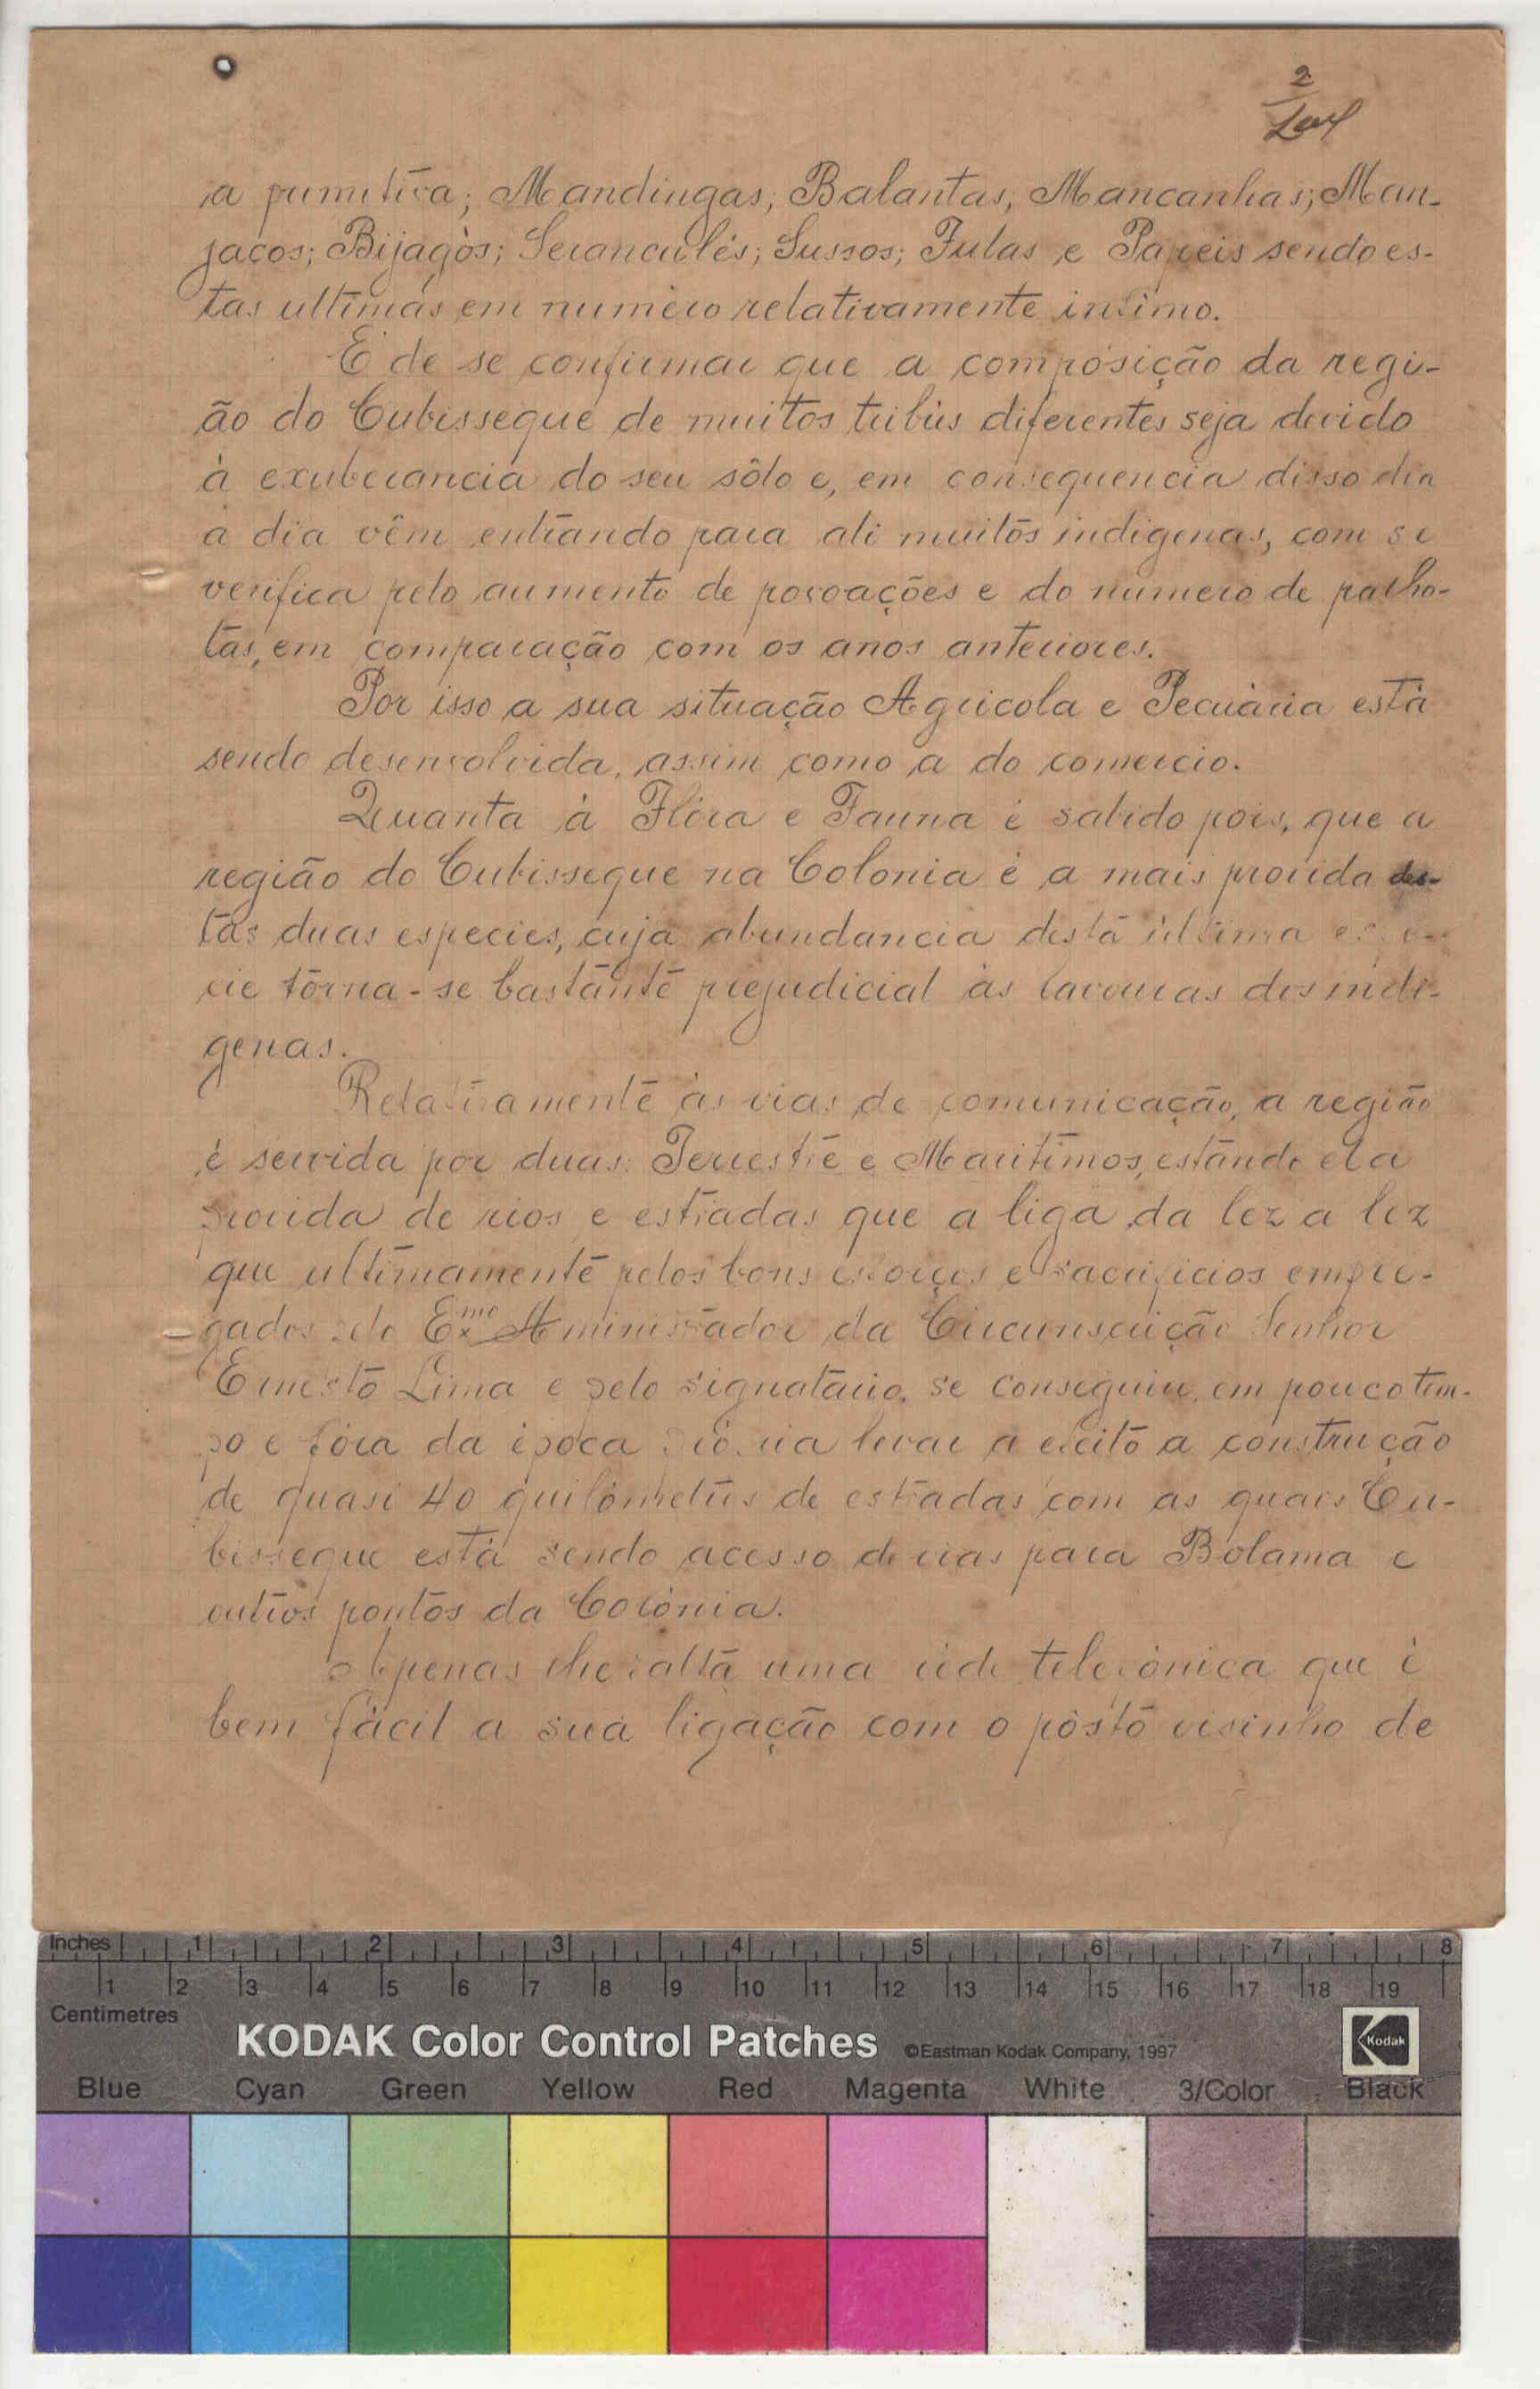 2
a primitiva; Mandingas; Balantas; Mancanhas; Man-
jacos; Bijagòs; Seranculés; Sussos; Fulas e Papeis sendo es-
tas ultimas em numero relativamente infimo.
É de se confirmar que a composição da regi-
ão do Cubisseque de muitos tribus diferentes seja devido
à exuberancia do seu sôlo e, em consequencia disso dia
a dia vêm entrando para ali muitos indigenas, com se
verifica pelo aumento de povoações e do numero de palho-
tas, em comparação com os anos anteriores.
Por isso a sua situação Agricola e Pecuària està
sendo desenvolvida, assim como a do comercio.
Quanta à Flóra e Fauna é sabido pois, que a
região do Cubisseque na Colonia é a mais provida des-
tas duas especies, cuja abundancia desta última espe-
cie tórna-se bastante prejudicial às lavouras dos indi-
genas.
Relativamente às vias de comunicação, a região
é servida por duas: Terrestre e Maritimos, estando ela
provida de rios e estradas que a liga da lez a lez
que ultimamente pelos bons esforços e sacrificios empre-
gados pelo Exmo Aministrador da Circunscrição Senhor
Ernesto Lima e pelo signatário, se conseguiu, em pouco tem-
po e fóra da época própria levar a efeito a construção
de quasi 40 quilómetros de estradas com as quais Cu-
bisseque está sendo acesso de vias para Bolama e
outros pontos da Colónia.
Apenas lhe falta uma réde telefónica que é
bem fácil a sua ligação com o pôsto visinho de
Inches 1 2 3 4 5 6 7 8
1 2 3 4 5 6 7 8 9 10 11 12 13 14 15 16 17 18 19
Centimetres
KODAK Color Control Patches ©Eastman Kodak Company, 1997 Kodak
Blue Cyan Green Yellow Red Magenta White 3/Color Black